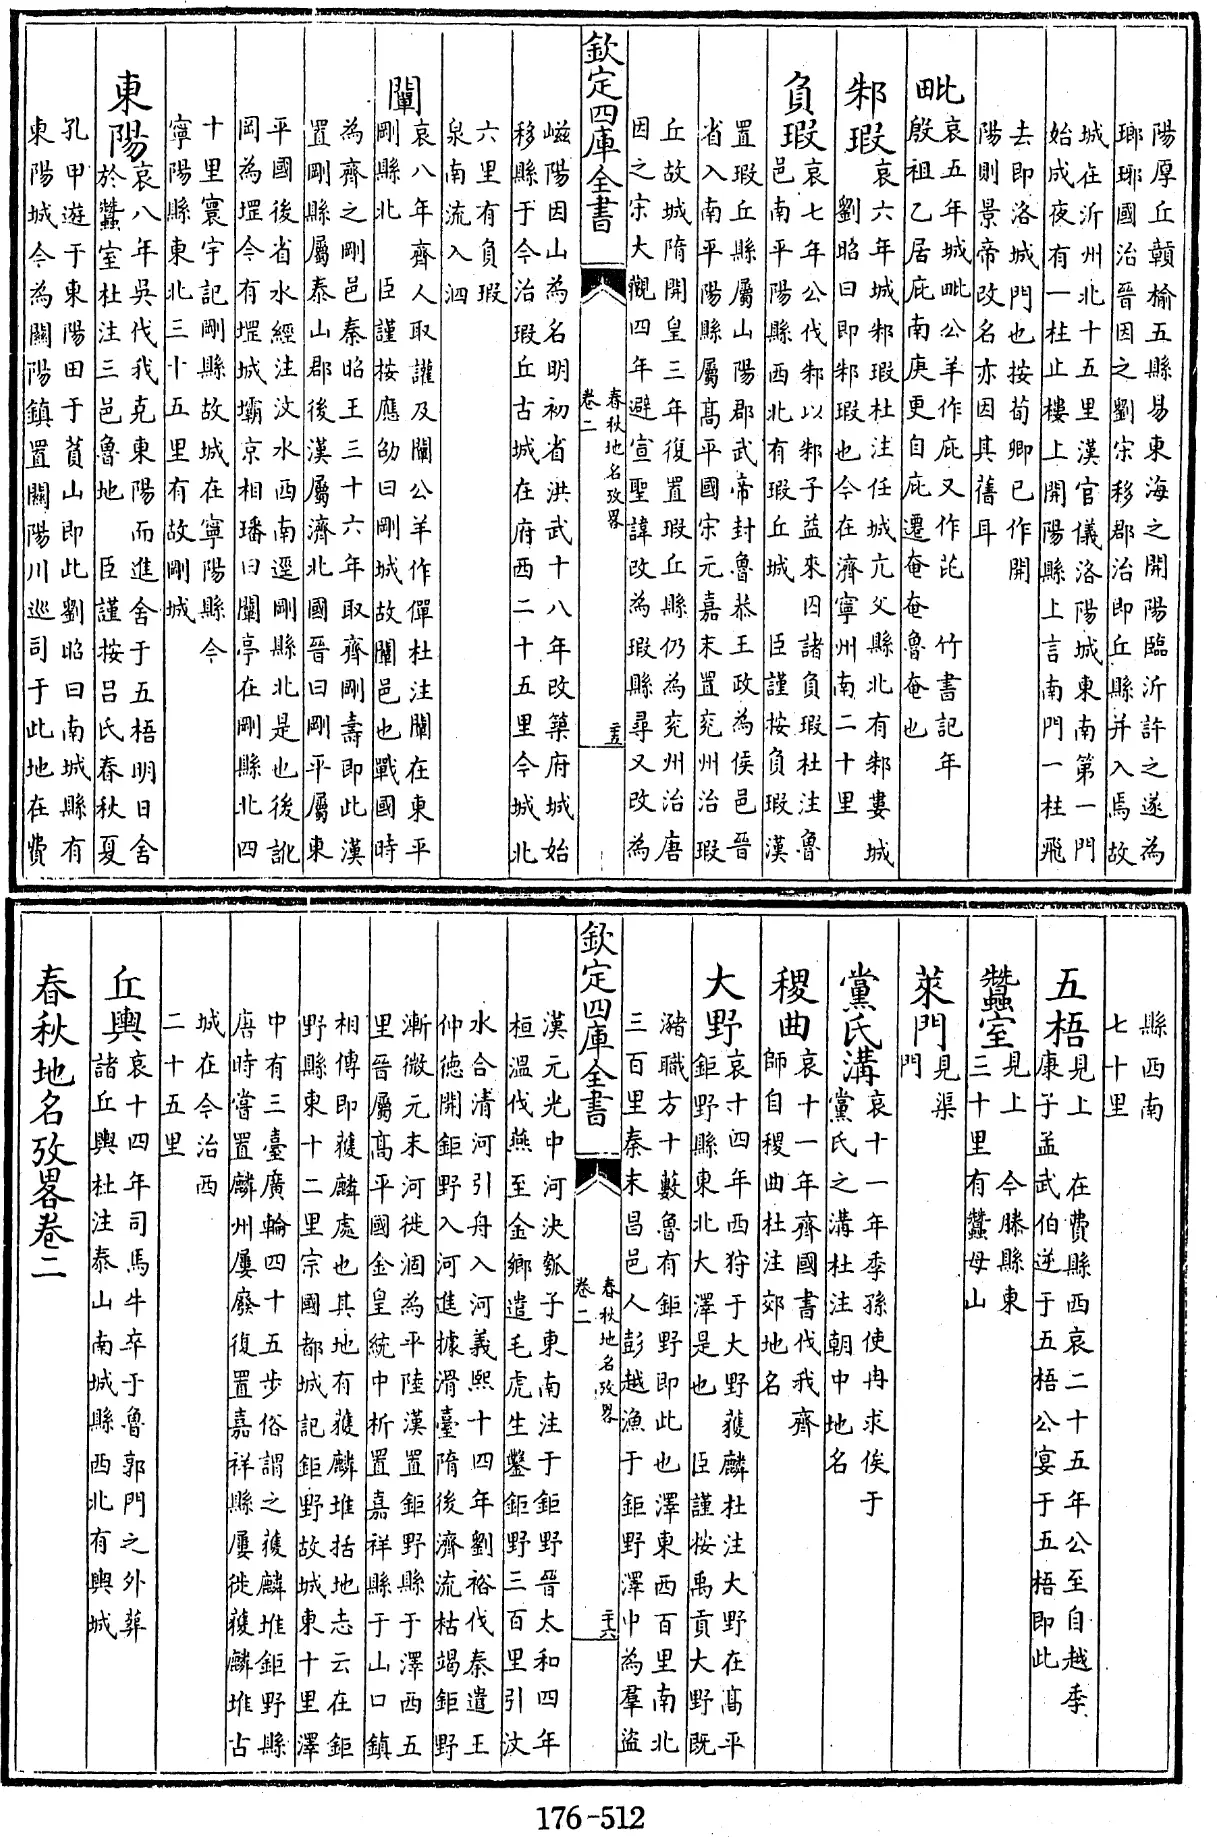 陽厚丘贛榆五縣易東海之開陽臨沂許之遂為
瑯琊國治晉因之劉宋移郡治即丘縣并入焉故
城在沂州北十五里漢官儀洛陽城東南第一門
始成夜有一柱止樓上開陽縣上言南門一柱飛
去即洛城門也按荀卿已作開
陽則景帝改名亦因其舊耳
毗
哀五年城毗公羊作庇又作芘 竹書記年
殷祖乙居庇南庚更自庇遷奄奄魯奄也
邾瑕
哀六年城邾瑕杜注任城亢父縣北有邾婁城
劉昭曰即邾瑕也今在濟寧州南二十里
負瑕
哀七年公伐邾以邾子益來囚諸負瑕杜注魯
邑南平陽縣西北有瑕丘城 臣謹按負瑕漢
置瑕丘縣屬山陽郡武帝封魯恭王政為侯邑晉
省入南平陽縣屬高平國宋元嘉末置兖州治瑕
丘故城隋開皇三年復置瑕丘縣仍為兖州治唐
因之宋大觀四年避宣聖諱改為瑕縣尋又改為
欽定四庫全書
春秋地名攷畧
卷二
二十五
嵫陽因山為名明初省洪武十八年改築府城始
移縣于今治瑕丘古城在府西二十五里今城北
六里有負瑕
泉南流入泗
闡
哀八年齊人取讙及闡公羊作僤杜注闡在東平
剛縣北 臣謹按應劭曰剛城故闡邑也戰國時
為齊之剛邑秦昭王三十六年取齊剛壽即此漢
置剛縣屬泰山郡後漢屬濟北國晉曰剛平屬東
平國後省水經注汶水西南逕剛縣北是也後訛
岡為堽今有堽城壩京相璠曰闡亭在剛縣北四
十里寰宇記剛縣故城在寧陽縣今
寧陽縣東北三十五里有故剛城
東陽
哀八年吳伐我克東陽而進舍于五梧明日舍
於蠶室杜注三邑魯地 臣謹按呂氏春秋夏
孔甲遊于東陽田于萯山即此劉昭曰南城縣有
東陽城今為關陽鎮置關陽川巡司于此地在費
縣西南
七十里
五梧
見上 在費縣西哀二十五年公至自越季
康子孟武伯逆于五梧公宴于五梧即此
蠶室
見上 今滕縣東
三十里有蠶母山
萊門
見渠
門
黨氏溝
哀十一年季孫使冉求俟于
黨氏之溝杜注朝中地名
稷曲
哀十一年齊國書伐我齊
師自稷曲杜注郊地名
大野
哀十四年西狩于大野獲麟杜注大野在高平
鉅野縣東北大澤是也 臣謹按禹貢大野既
瀦職方十藪魯有鉅野即此也澤東西百里南北
三百里秦末昌邑人彭越漁于鉅野澤中為羣盜
漢元光中河決瓠子東南注于鉅野晉太和四年
桓溫伐燕至金鄉遣毛虎生鑿鉅野三百里引汶
水合清河引舟入河義熙十四年劉裕伐秦遣王
仲德開鉅野入河進據滑臺隋後濟流枯竭鉅野
漸微元末河徙涸為平陸漢置鉅野縣于澤西五
里晉屬高平國金皇統中析置嘉祥縣于山口鎮
相傳即獲麟處也其地有獲麟堆括地志云在鉅
野縣東十二里宗國都城記鉅野故城東十里澤
中有三臺廣輪四十五步俗謂之獲麟堆鉅野縣
唐時嘗置麟州屢廢復置嘉祥縣屢徙獲麟堆古
城在今治西
二十五里
丘輿
哀十四年司馬牛卒于魯郭門之外葬
諸丘輿杜注泰山南城縣西北有輿城
春秋地名攷畧卷二
欽定四庫全書
春秋地名攷畧
卷二
二十六
176-512